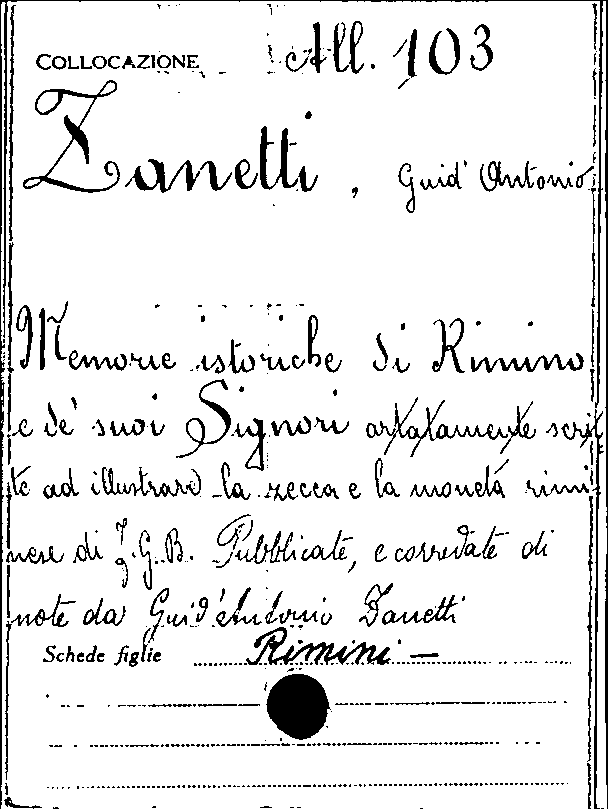 COLLOCAZIONE All. 103
Zanetti, Guid'Antonio
Memorie istoriche di Rimino
e de' suoi Signori artatamente scrit
te ad illustrare la zecca e la moneta rimi
nese di F. G. B. Pubblicate, e corredate di
note da Guid'Antonio Zanetti
Schede figlie Rimini —